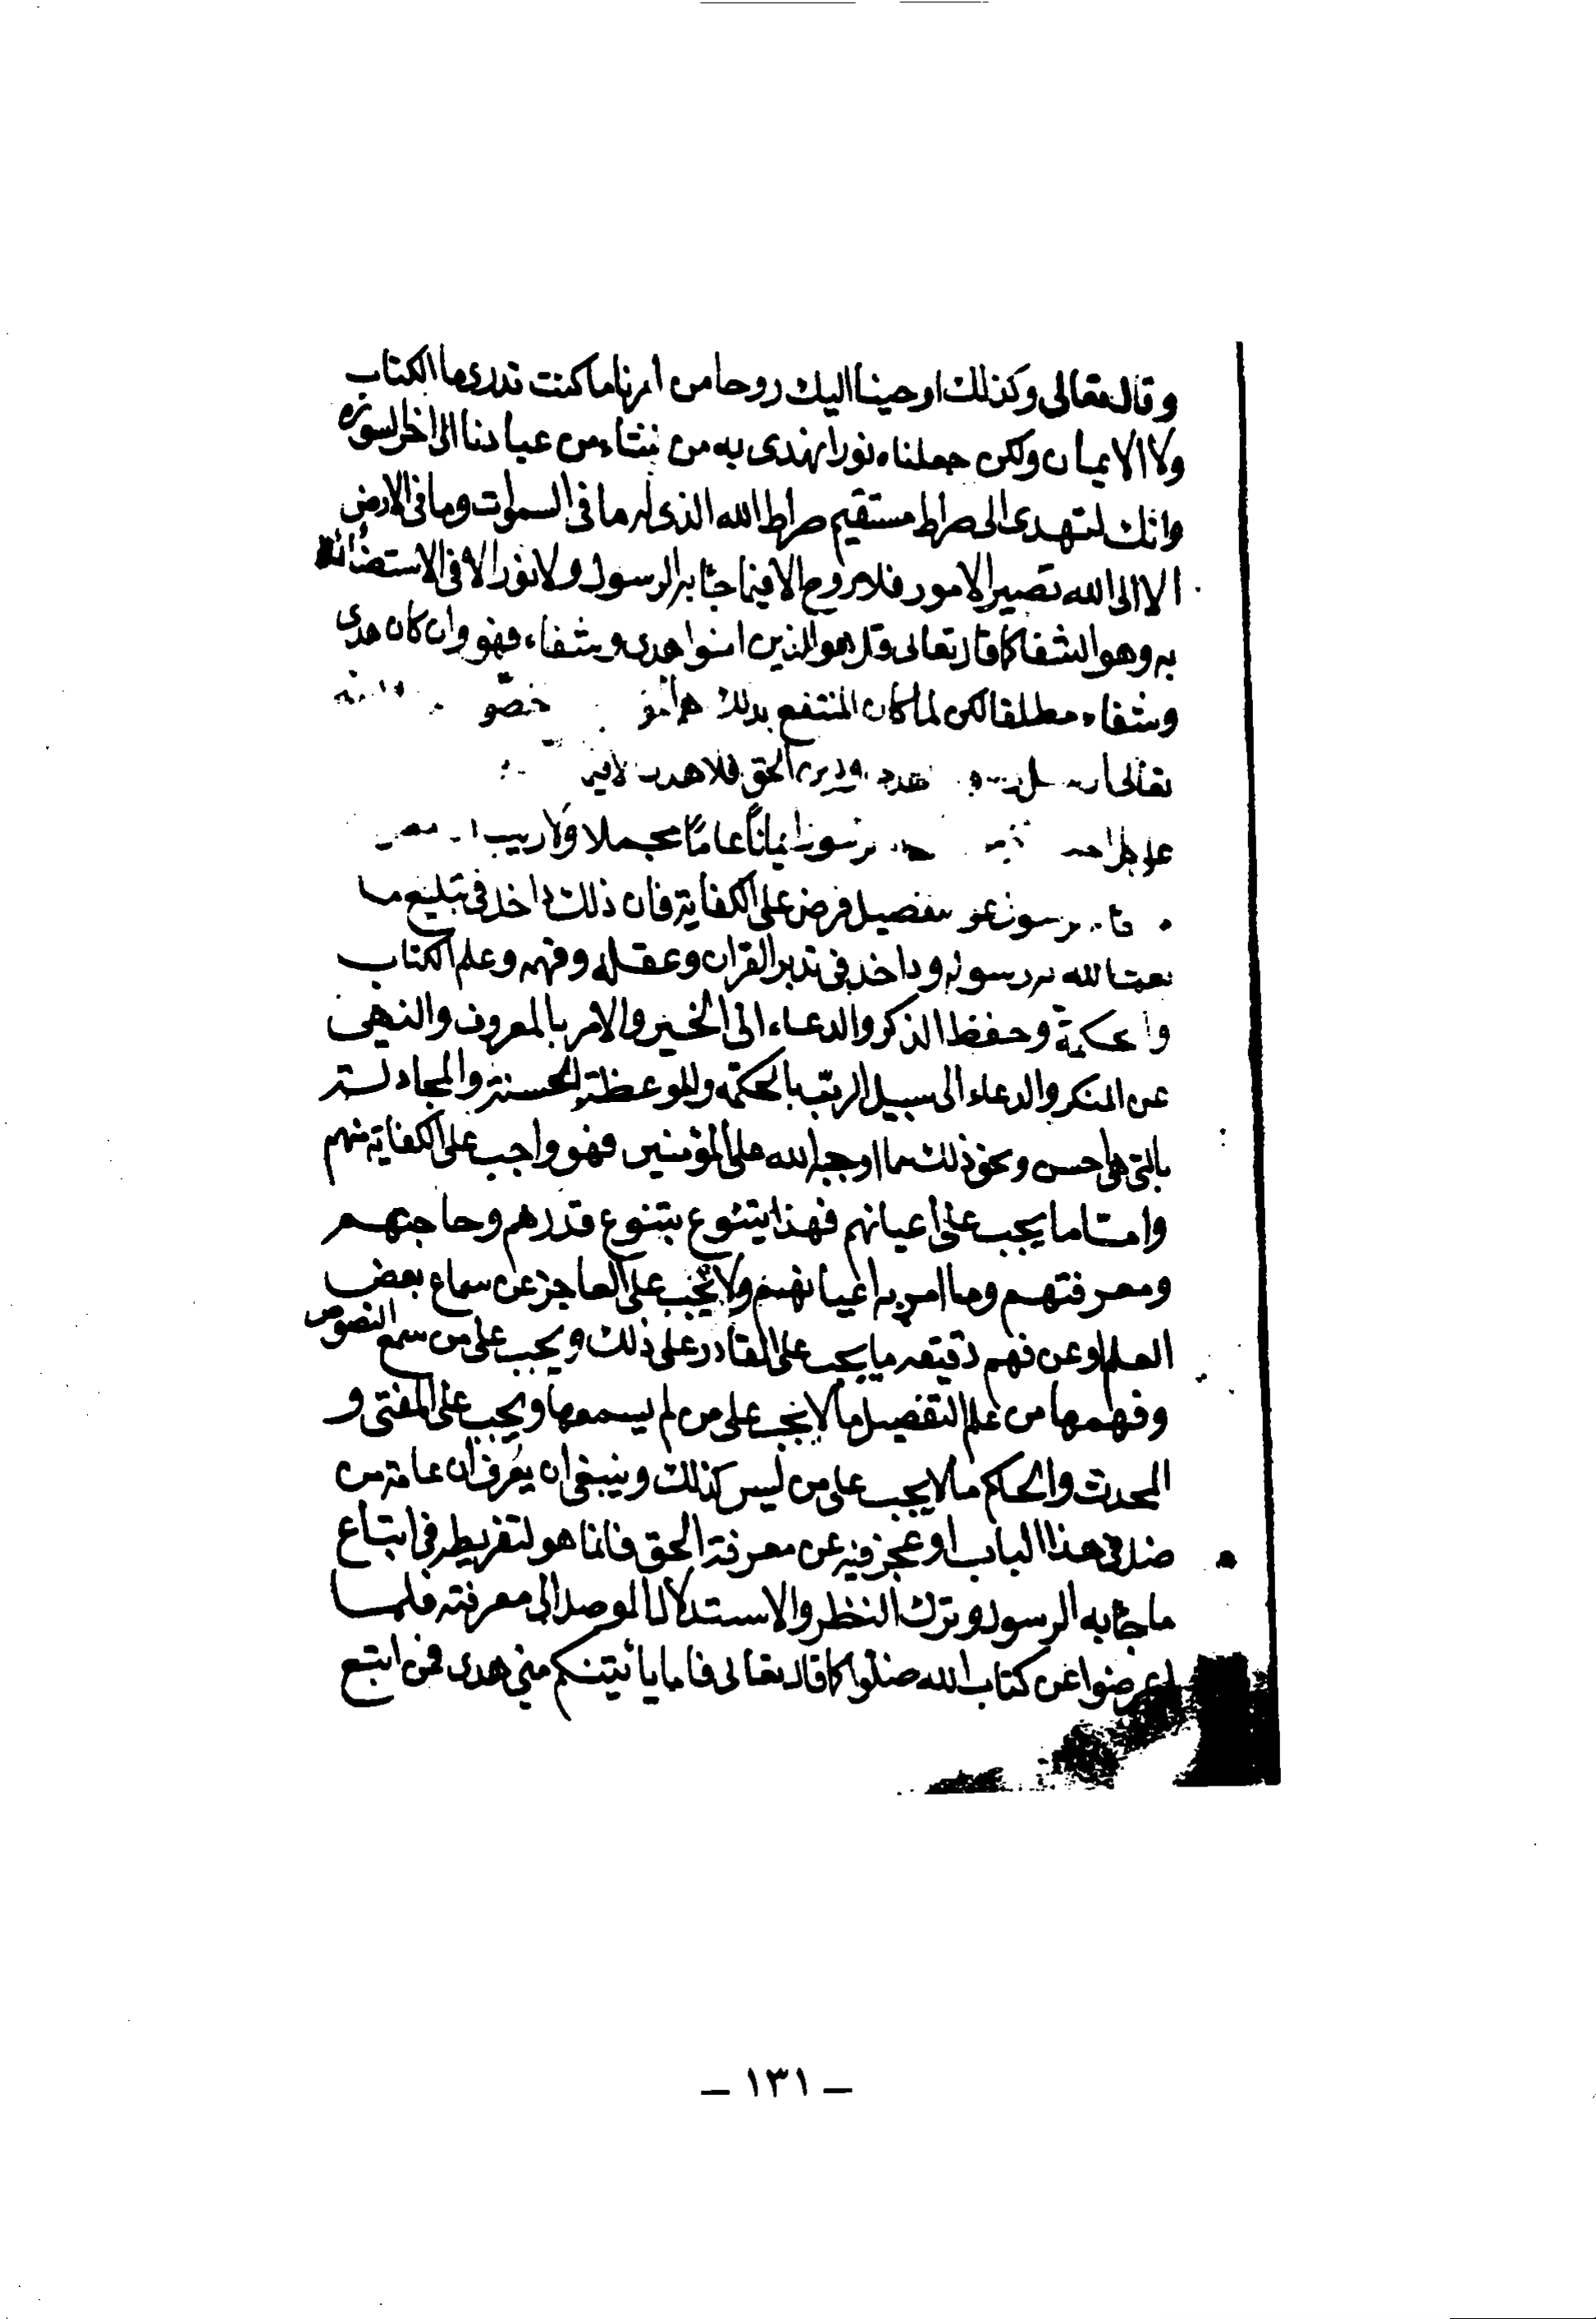 وقال تعالى وكذلك اوحينا اليك روحا من امرنا ما كنت تدرى ما الكتاب
ولا الايمان ولكن جعلناه نورا نهدى به من نشاء من عبادنا الى اخر السورة
وانك لتهدى الى صراط مستقيم صراط الله الذى له ما فى السموات وما فى الارض
الا الى الله تصير الامور فلا روح الا فيما جاء به الرسول ولا نور الا فى الاستضائة
به وهو الشفا كما قال تعالى قل هو للذين امنوا هدى وشفاء فهو وان كان هدى
وشفاء مطلقا لكن لما كان المنتفع بذلك خصو
تعالى الحق فلا هدى لا فيه
على ايمانا عاما مجملا ولا ريب
التفصيل فرض على الكفاية فان ذلك داخل فى تبليغ ما
بعث الله به رسوله وداخل فى تدبر القران وعقله وفهمه وعلم الكتاب
والحكمة وحفظ الذكر والدعاء الى الخير والامر بالمعروف والنهى
عن المنكر والدعاء الى سبيل الرب بالحكمة والموعظة الحسنة والمجادلة
بالتى هى احسن ونحو ذلك مما اوجبه الله على المؤمنين فهو واجب على الكفاية منهم
وامتا ما يجب على اعيانهم فهذا يتنوع بتنوع قدرهم وحاجتهم
ومعرفتهم وما امر به اعيانهم ولا يجب على العاجز عن سماع بعض
العلم او عن فهم دقيقه ما يجب على القادر على ذلك ويجب على من سمع النصوص
وفهمها من علم التفصيل ما لا يجب على من لم يسمعها ويجب على المفتى و
المحدث والحاكم ما لا يجب على من ليس كذلك وينبغى ان يعرف ان عامة من
ضل فى هذا الباب او عجز فيه عن معرفة الحق فانما هو لتفريطه فى اتباع
ما جاء به الرسول وترك النظر والاستدلال الموصل الى معرفته فلما
اعرضوا عن كتاب الله ضلوا كما قال تعالى فاما يأتينكم منى هدى فمن اتبع
– ١٣١ –